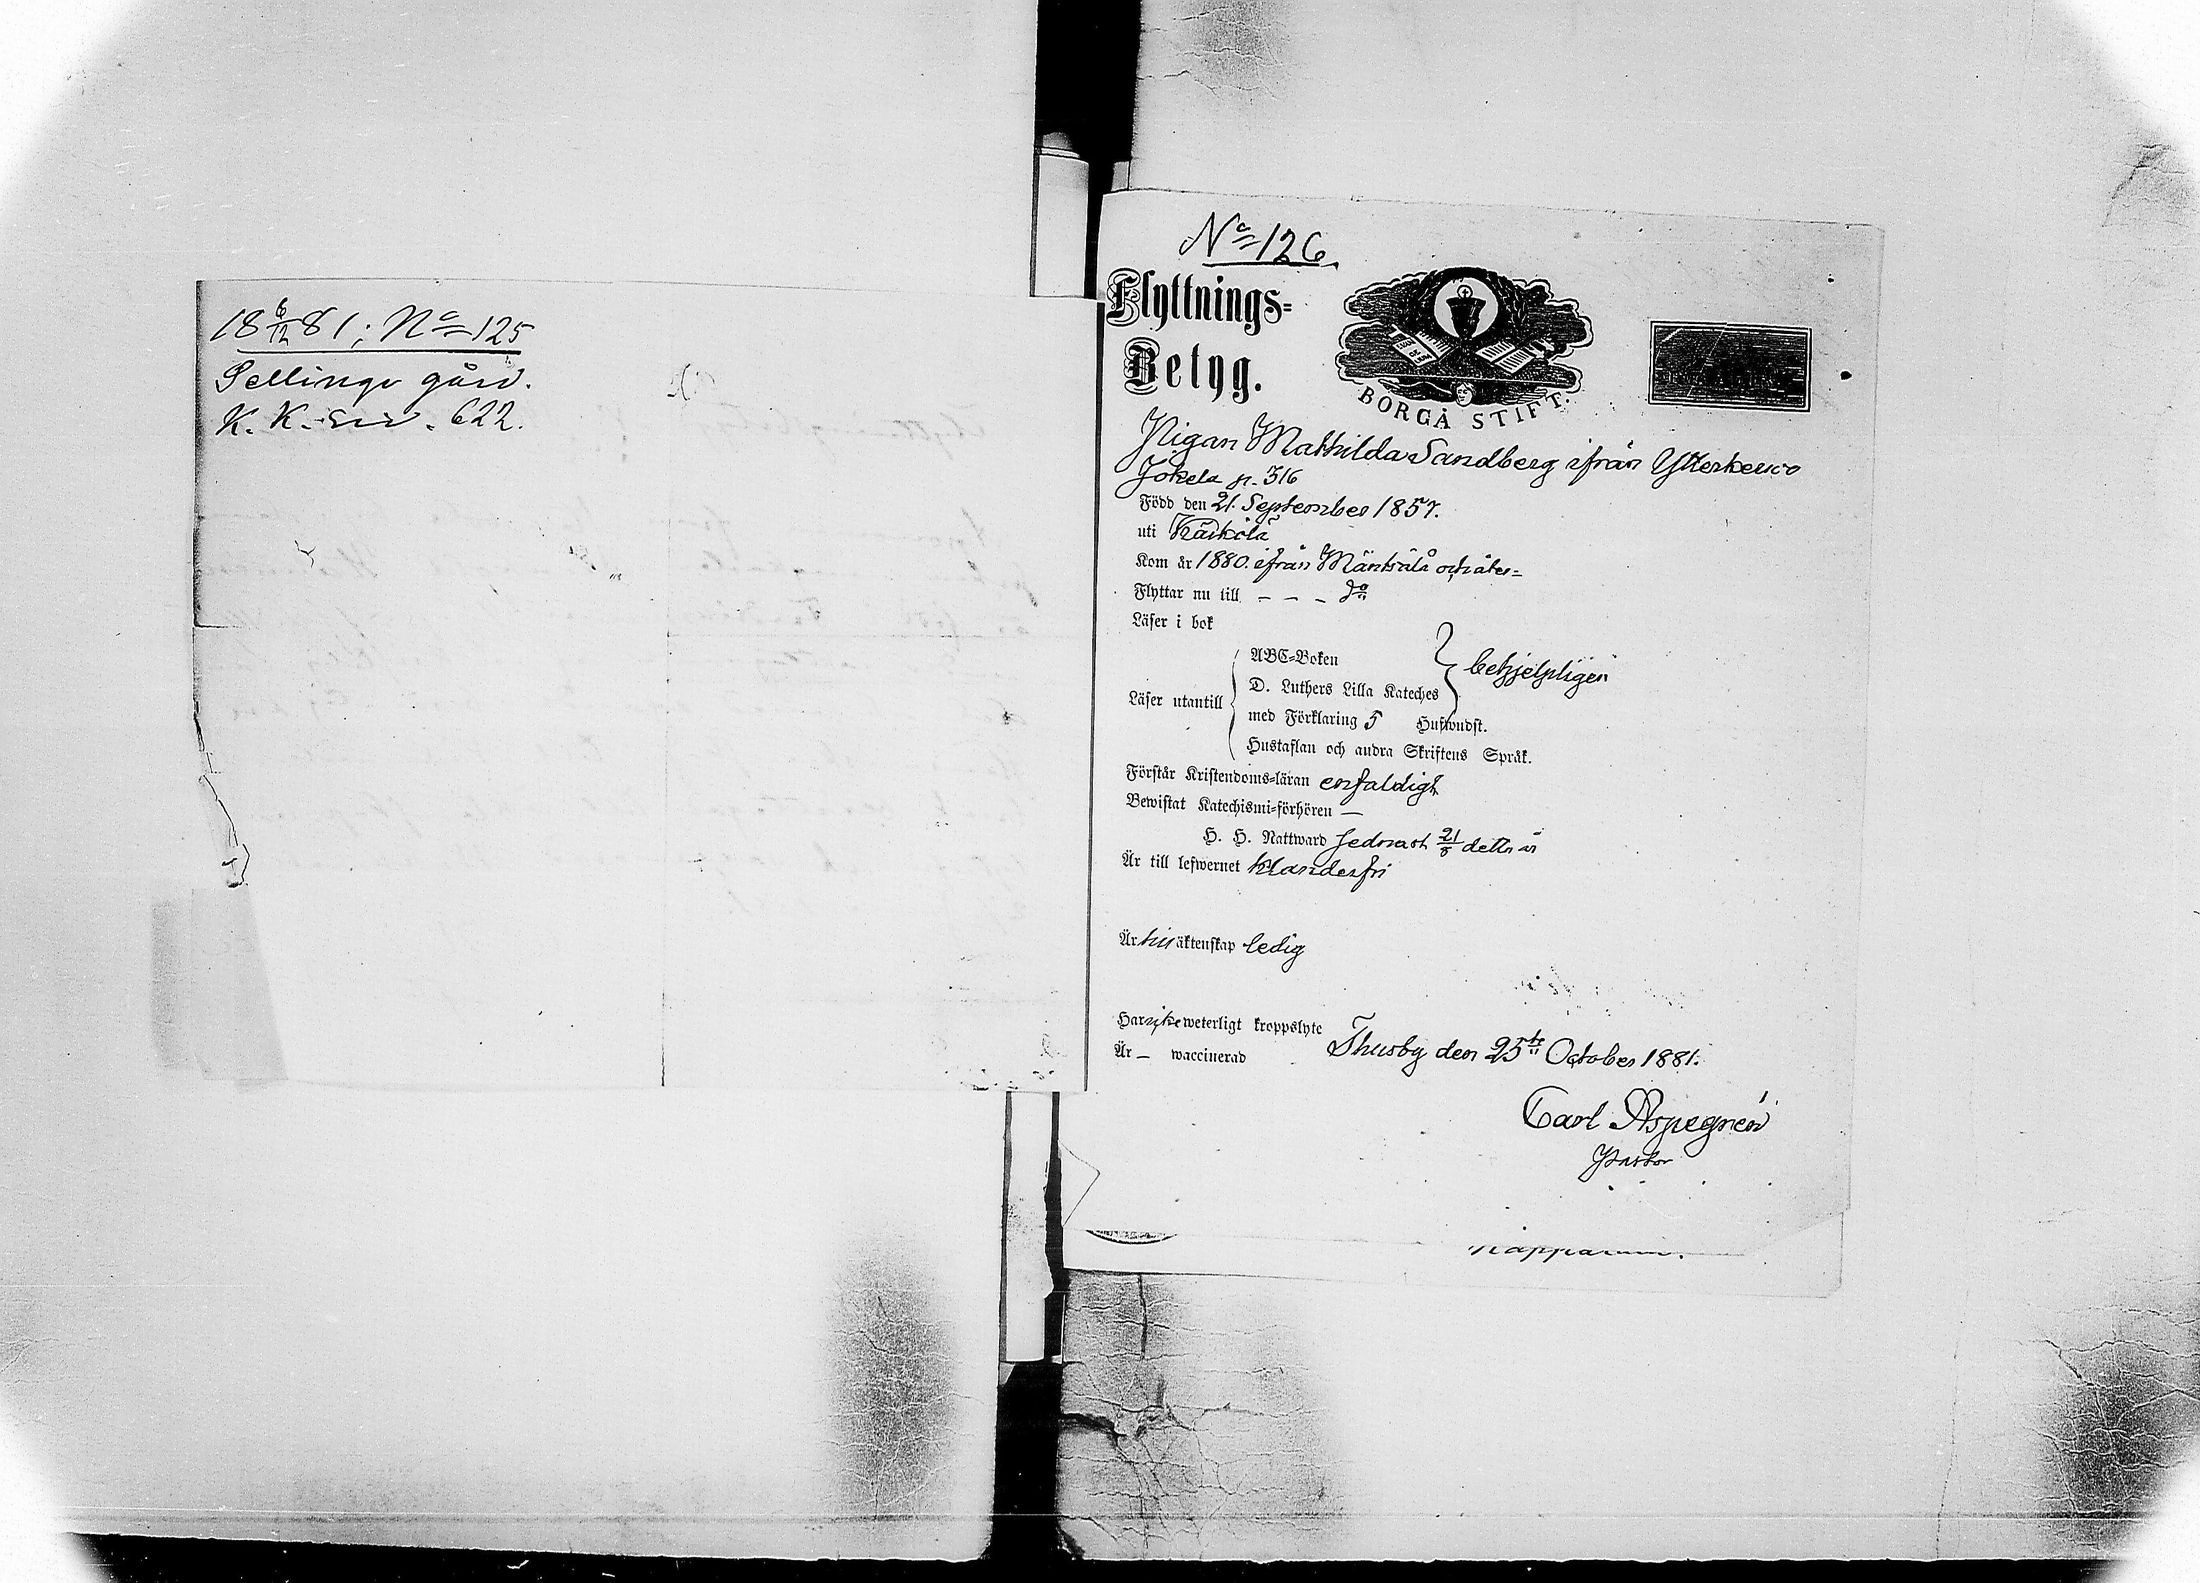 18 6/12 81; No 125
Sellinge gård.
K. K. sid. 622.
No 126.
Flyttnings=
Betyg.
BORGÅ STIFT.
Pigan Mathilda Sandberg ifrån Ytterkervo
Jokela p. 316
Född den 21. September 1857.
uti Kärkölä
Kom år 1880. ifrån Mäntsälä och åter=
Flyttar nu till - - - do
Läser i bok
ABC=Boken
D. Luthers Lilla Kateches
behjelpligen
Läser utantill
med Förklaring 5 Hufwudst.
Hustaflan och andra Skriftens Språk.
Förstår Kristendoms=läran enfaldigt
Bewistat Katechismi=förhören —
H. H. Nattward sednast 21/8 detta år
Är till lefwernet klanderfri
Är till äktenskap ledig
Har icke weterligt kroppslyte
Är — waccinerad
Thusby den 25te October 1881.
Carl Aspegrén
Pastor